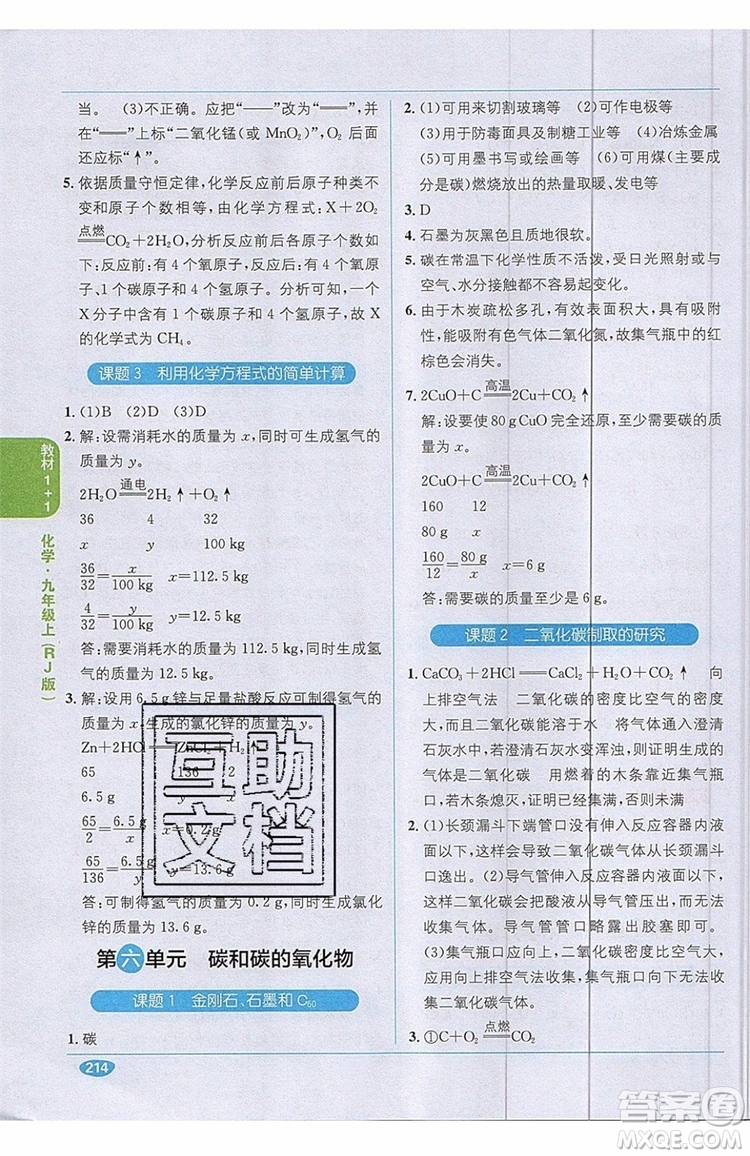 当。 (3)不正确。应把“——”改为“══”，并
在“══”上标“二氧化锰(或 MnO₂)”，O₂ 后面
还应标“↑”。
5. 依据质量守恒定律，化学反应前后原子种类不
变和原子个数不变。由化学方程式：X＋2O₂
点燃
══CO₂＋2H₂O，分析反应前后原子个数情
况：反应前：有 4 个氧原子，反应后：有 4 个氧原
子、1 个碳原子和 4 个氢原子。分析可知，一个
X分子中含有 1 个碳原子和 4 个氢原子。
故 X 的化学式为 CH₄。
课题 3 利用化学方程式的简单计算
1. (1)B (2)D (3)D
2. 解：设需消耗水的质量为 x，同时可生成氢气
的质量为 y。
2H₂O══通电══2H₂↑＋O₂↑
36 4 32
x y 100 kg
36/32＝x/100 kg x＝112.5 kg
4/32＝y/100 kg y＝12.5 kg
答：需要消耗水的质量为 112.5 kg，同时生成氢
气的质量为 12.5 kg。
3. 解：设用 6.5 g 锌与足量盐酸反应可制得氢气
的质量为 x，生成的氯化锌的质量为 y。
Zn＋2HCl══ZnCl₂＋H₂↑
65 136 2
6.5 g y x
65/2＝6.5 g/x x＝0.2 g
65/136＝6.5 g/y y＝13.6 g
答：可制得氢气的质量为 0.2 g，同时生成氯化
锌的质量为 13.6 g。
第六单元 碳和碳的氧化物
课题 1 金刚石、石墨和 C₆₀
1. 碳
214
教材 1+1
化学·九年级上(RJ版)
2. (1)可用来切割玻璃等 (2)可作电极等
(3)用于防毒面具及制糖工业等 (4)冶炼金属
(5)可用墨书写或绘画等 (6)可用煤(主要成分
是碳)燃烧放出的热量取暖、发电等
3. D
4. 石墨为灰黑色且质地很软。
5. 碳在常温下化学性质不活泼，受日光照射或与
空气、水分接触都不容易起变化。
6. 由于木炭疏松多孔，有效表面积大，具有吸附
性，能吸附有色气体二氧化氮，故集气瓶中的红
棕色会消失。
7. 2CuO＋C══高温══2Cu＋CO₂↑
解：设要使 80 g CuO 完全还原，至少需要碳的
质量为 x。
2CuO＋C══高温══2Cu＋CO₂↑
160 12
80 g x
160/12＝80 g/x x＝6 g
答：需要碳的质量至少为 6 g。
课题 2 二氧化碳制取的研究
1. CaCO₃＋2HCl══CaCl₂＋H₂O＋CO₂↑ 向
上排空气法 二氧化碳的密度比空气的密度
大 因二氧化碳能溶于水 将气体通入澄清
石灰水中，若澄清石灰水变浑浊，则证明生成的
气体是二氧化碳 用燃着的木条靠近集气瓶
口，若木条熄灭，则二氧化碳已集满
2. (1)长颈漏斗下端管口没有伸入反应容器内液
面以下，这样会导致二氧化碳气体从长颈漏斗
口逸出。(2)导气管伸入反应容器内液面以下，
这样二氧化碳气体不能导出，同时会使酸液进入
导气管。导气管管口略露出胶塞即可。
(3)集气瓶口应向上，导气管应伸入集气瓶底部，
应用向上排空气法收集。集气瓶口向下无法收集
二氧化碳气体。
3. ①C＋O₂══点燃══CO₂
互助
文档
答案圈
MXQE.COM